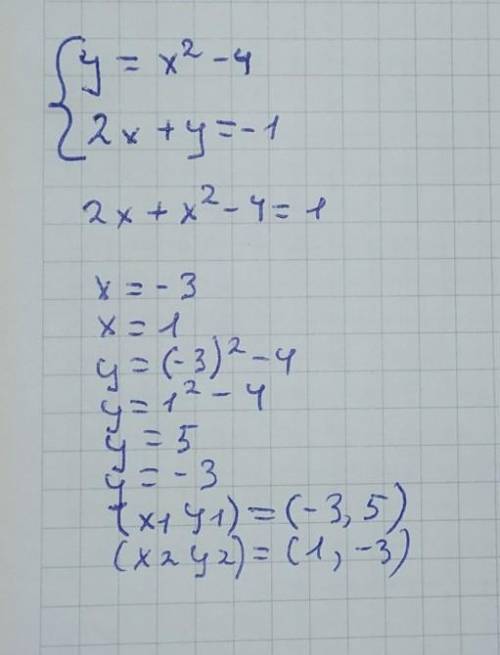 y = x² - 4
2x + y = -1
2x + x² - 4 = 1
x = - 3
x = 1
y = (-3)² - 4
y = 1² - 4
y = 5
y = - 3
(x1 y1) = (-3, 5)
(x2 y2) = (1, -3)